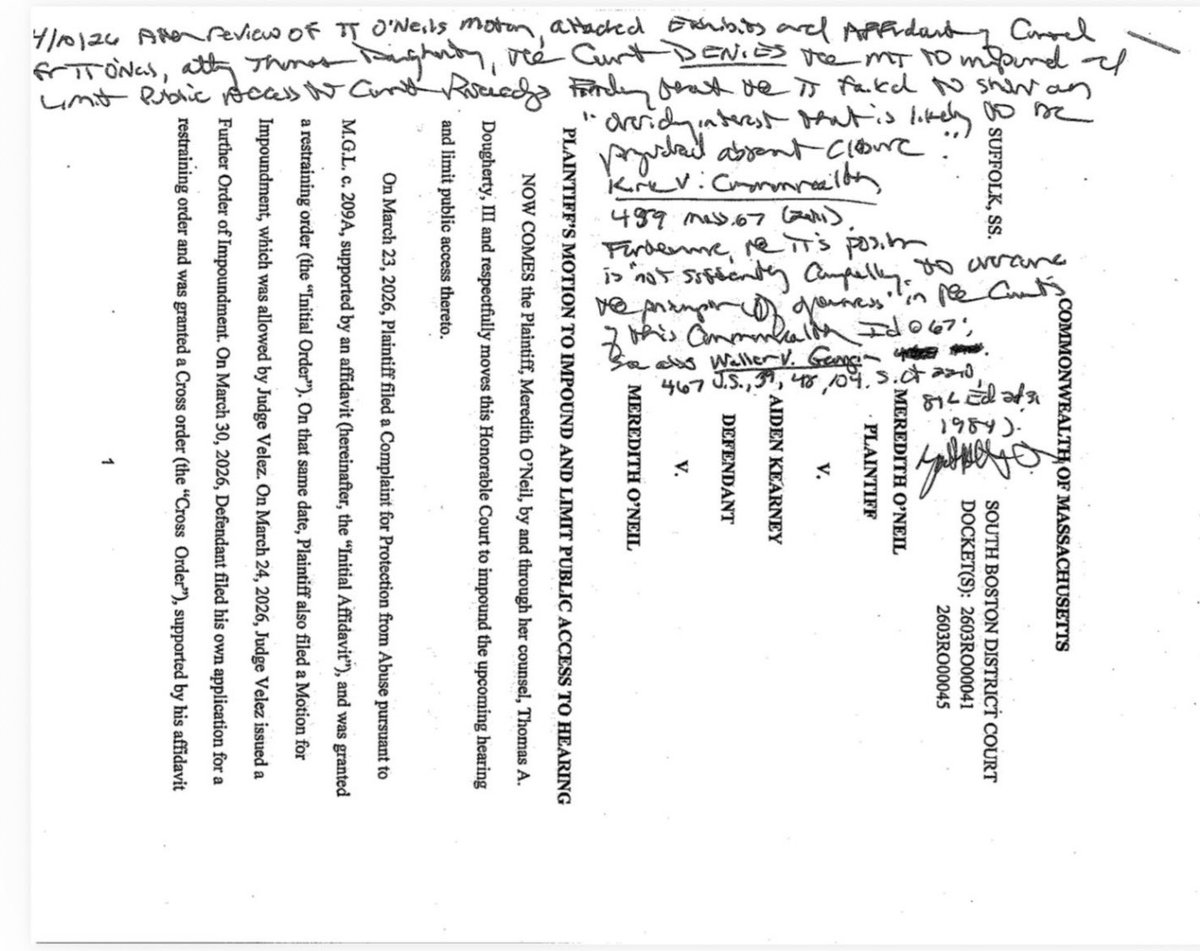 4/10/26 After review of π O'Neil's motion, attached Exhibits and Affidavit of Counsel
for π O'Neil, atty Thomas Daugherty, the Court DENIES the MT to impound and
Limit Public Access to Court Proceedings Finding that the π failed to show an
"overriding interest that is likely to be
prejudiced absent closure."
Kirk v. Commonwealth,
459 Mass. 67 (2011).
Furthermore, the π's position
is "not sufficiently compelling to overcome
the presumption of openness" in the Courts
of this Commonwealth Id @ 67;
See also Waller v. Georgia
467 U.S., 39, 48, 104 S.Ct 2210,
81 L Ed 2d 31
1984).
COMMONWEALTH OF MASSACHUSETTS
SUFFOLK, SS.
SOUTH BOSTON DISTRICT COURT
DOCKET(S): 2603RO000041
2603RO00045
MEREDITH O'NEIL
PLAINTIFF
V.
AIDEN KEARNEY
DEFENDANT
V.
MEREDITH O'NEIL
PLAINTIFF'S MOTION TO IMPOUND AND LIMIT PUBLIC ACCESS TO HEARING
NOW COMES the Plaintiff, Meredith O'Neil, by and through her counsel, Thomas A.
Dougherty, III and respectfully moves this Honorable Court to impound the upcoming hearing
and limit public access thereto.
On March 23, 2026, Plaintiff filed a Complaint for Protection from Abuse pursuant to
M.G.L. c. 209A, supported by an affidavit (hereinafter, the "Initial Affidavit"), and was granted
a restraining order (the "Initial Order"). On that same date, Plaintiff also filed a Motion for
Impoundment, which was allowed by Judge Velez. On March 24, 2026, Judge Velez issued a
Further Order of Impoundment. On March 30, 2026, Defendant filed his own application for a
restraining order and was granted a Cross order (the "Cross Order"), supported by his affidavit
1